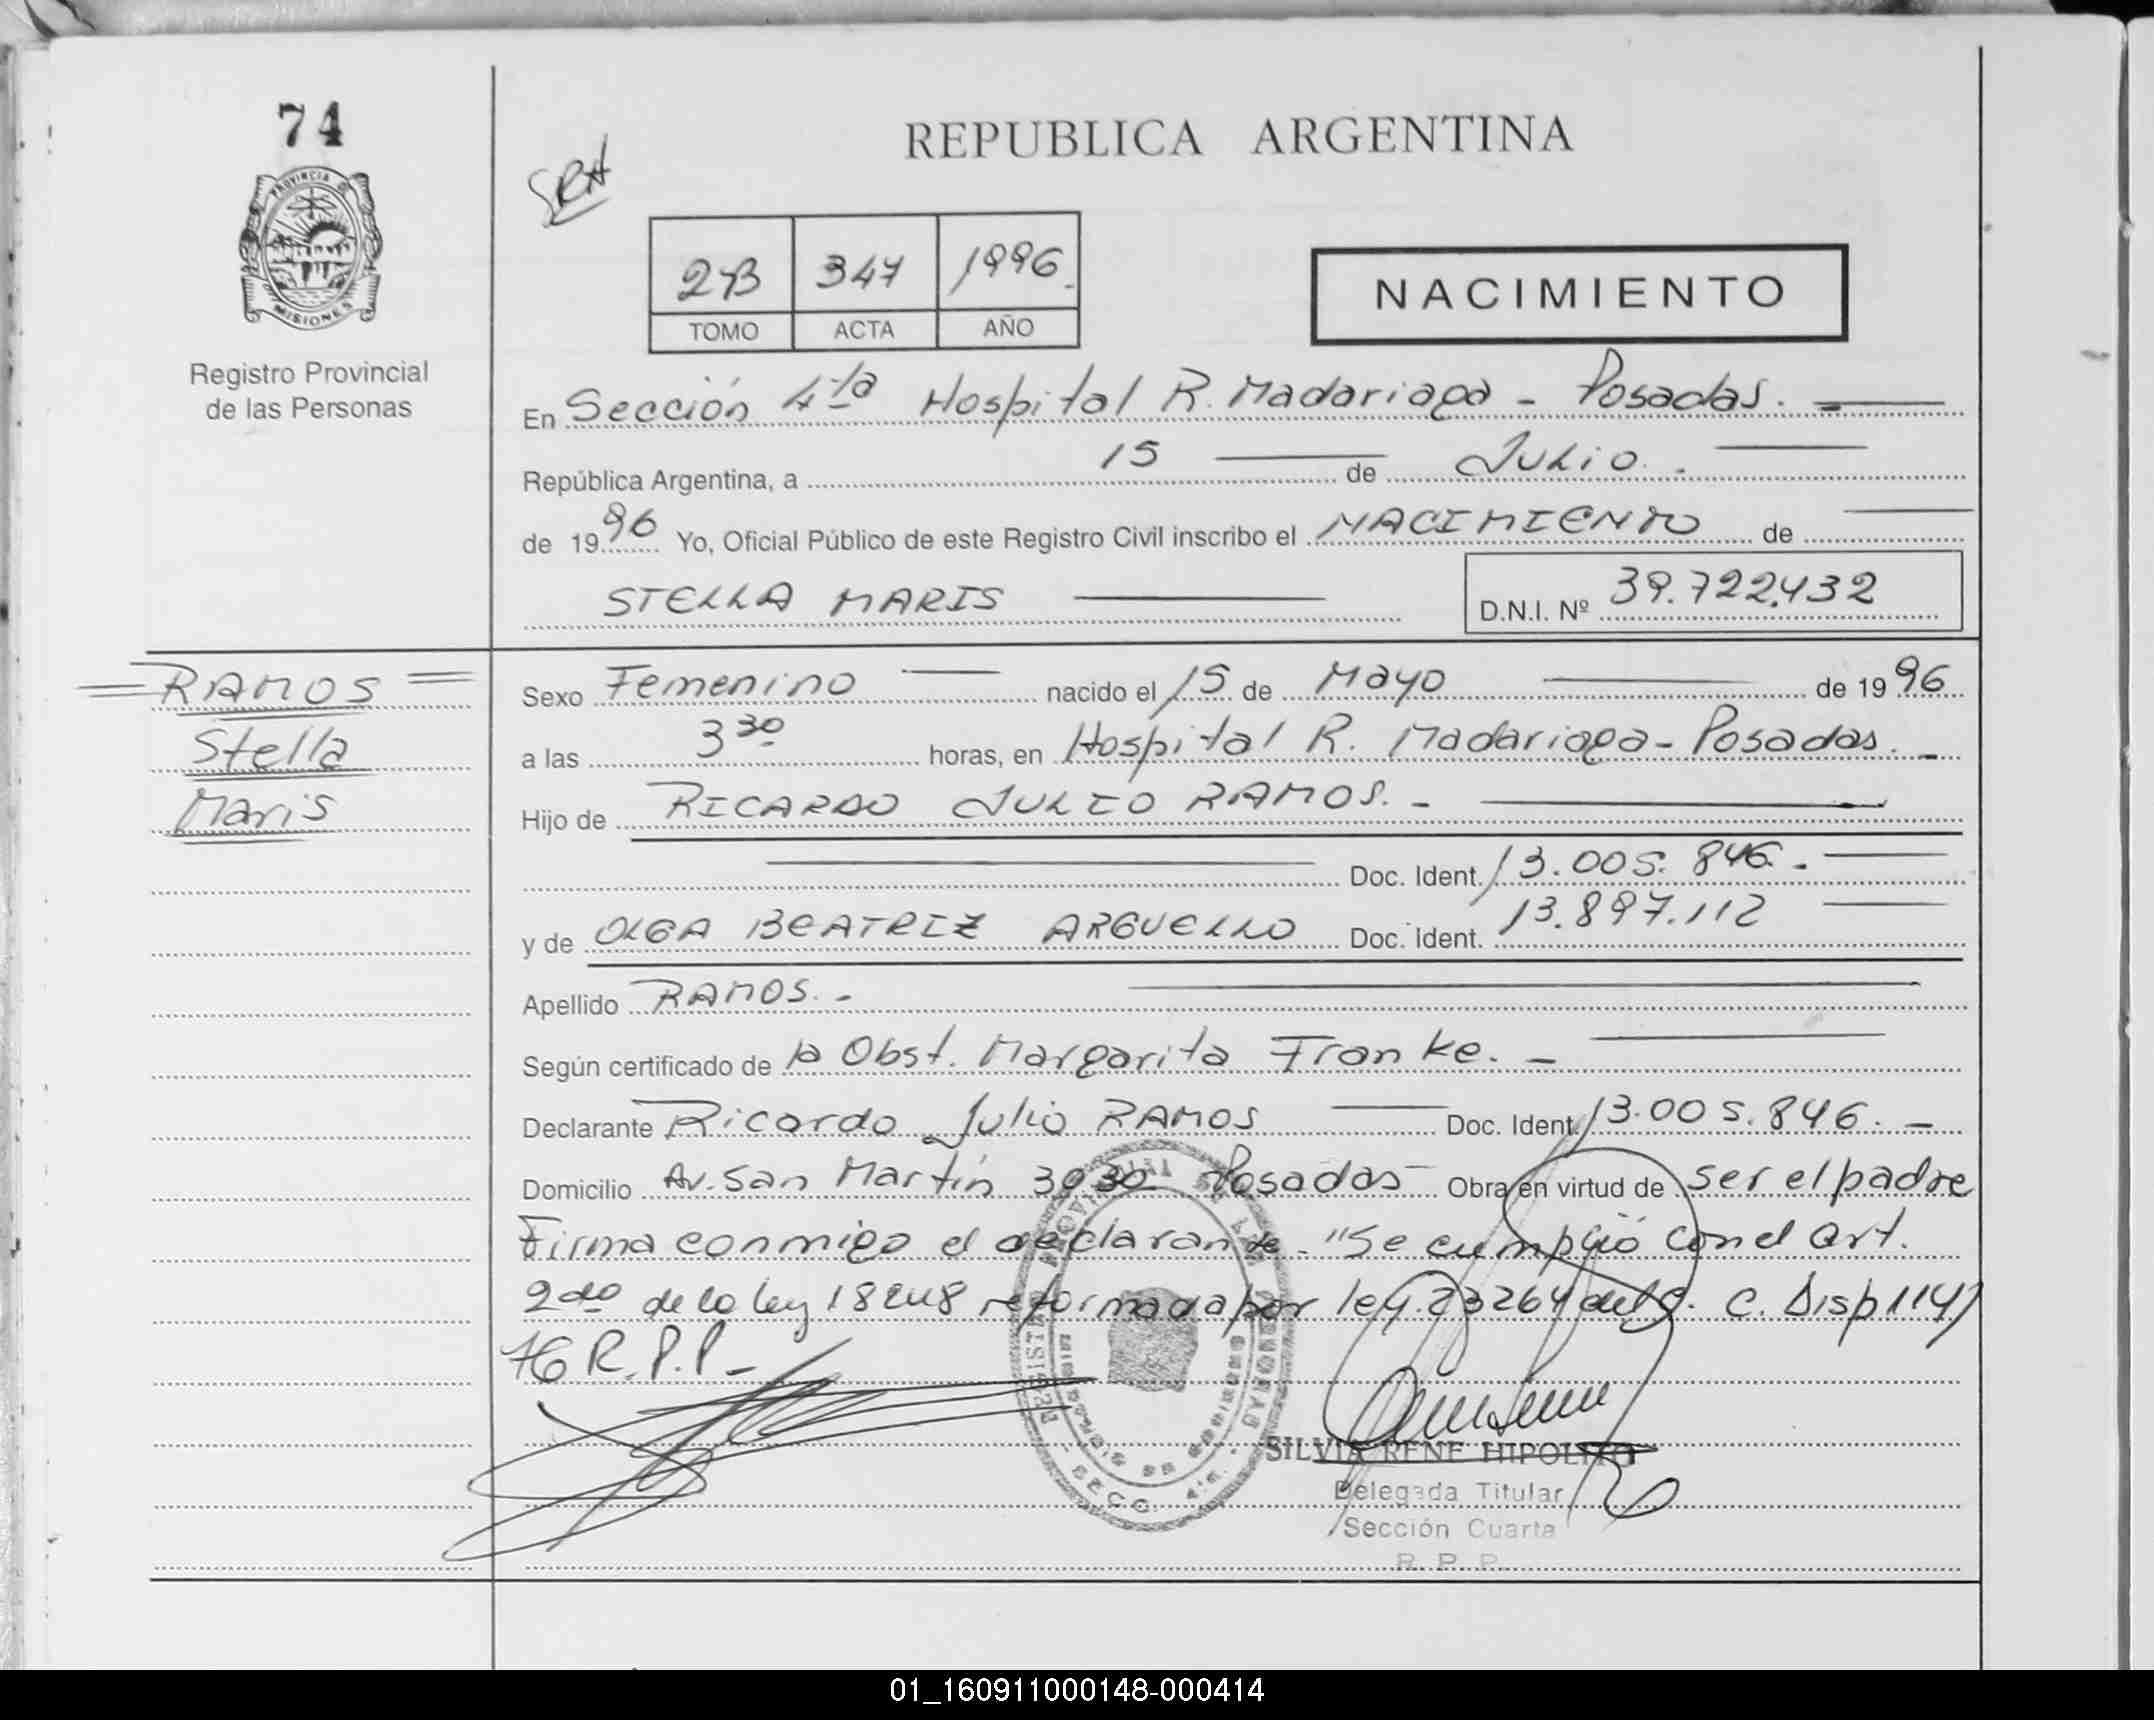 74
REPUBLICA ARGENTINA
PROVINCIA D
MISIONES
SRH
2B 347 1996
TOMO ACTA AÑO
NACIMIENTO
Registro Provincial
de las Personas
En Sección 4ta Hospital R. Madariaga - Posadas.
República Argentina, a 15 de Julio.
de 1996 Yo, Oficial Público de este Registro Civil inscribo el NACIMIENTO de
STELLA MARIS D.N.I. Nº 39.722.432
RAMOS
Stella
Maris
Sexo Femenino nacido el 15 de Mayo de 1996
a las 3 30 horas, en Hospital R. Madariaga - Posadas. -
Hijo de RICARDO JULIO RAMOS. -
Doc. Ident. 13.005.846. -
y de OLGA BEATRIZ ARGUELLO Doc. Ident. 13.897.112
Apellido RAMOS. -
Según certificado de la Obst. Margarita Franke. -
Declarante Ricardo Julio RAMOS Doc. Ident. 13.005.846. -
Domicilio Av. San Martín 3030 Posadas Obra en virtud de ser el padre
Firma conmigo el declarante. "Se cumplió con el Art.
2do de la ley 18248 reformada por ley. 23264 del C. C. Disp 114/
76 R.P.P. -
SILVIA RENE HIPOLITO
Delegada Titular
Sección Cuarta
R. P. P.
01_160911000148-000414